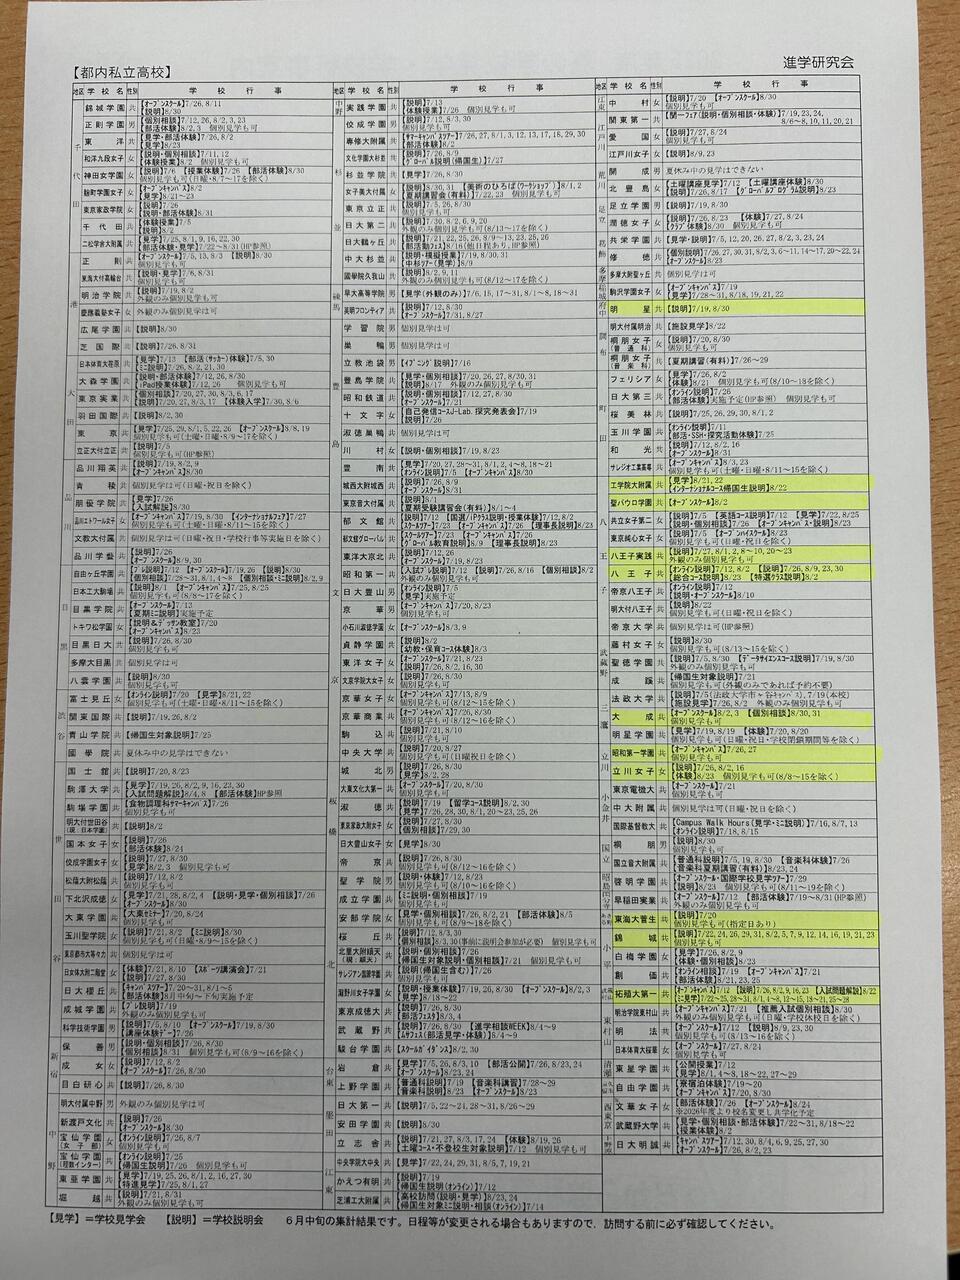 【都内私立高校】
進学研究会
地区 学校名 性別 学校行事
千代田
錦城学園 共 【オープンスクール】7/26, 8/11
【説明】8/30
正則学園 男 【個別相談】7/12, 26, 8/2, 3, 23
【部活体験】8/2, 3 個別見学も可
東洋 共 【見学・部活体験】7/26, 8/2
【見学】8/23
和洋九段女子 女 【説明・個別相談】7/11, 12
【体験授業】8/2 個別見学も可
神田女学園 女 【説明】7/6 【授業体験】7/26 【部活体験】8/30
個別見学も可(日曜・8/7～17を除く)
麹町学園女子 女 【オープンキャンパス】8/2
【見学】8/21～23
東京家政学院 女 【説明】7/26
【説明・部活体験】8/31
千代田 共 【体験授業】7/5
【説明】8/2
二松学舎大附属 共 【説明】7/25, 8/1, 9, 16, 22, 30
【部活体験・見学】7/22～8/31(HP参照)
港
正則 共 【オープンスクール】7/5, 13, 8/3 【説明】8/30
個別見学も可
東海大付高輪台 共 【説明・見学】7/6, 8/31
個別見学も可
明治学院 共 【説明】7/19, 8/2
外観のみ個別見学も可
慶應義塾女子 女 外観のみ個別見学は可
広尾学園 共 【説明】8/30
芝国際 共 【説明】7/26, 8/31
大田
日本体育大荏原 共 【見学】7/13 【部活(サッカー)体験】7/5, 30
【ミニ説明】7/26, 8/2, 21, 30
大森学園 共 【説明・部活体験】7/12, 26, 8/30
【iPad授業体験】7/12, 26 個別見学も可
東京実業 共
羽田国際 共 【説明】8/2, 30
東京 共 【見学】7/25, 29, 8/1, 5, 22, 26 【オープンスクール】8/8, 19
個別見学も可(土曜・日曜・8/9～17を除く)
立正大付立正 共 【説明】7/5
個別見学も可(HP参照)
品川
品川翔英 共 【説明】7/19, 8/2, 9
【オープンキャンパス】8/30
青稜 共 個別見学は可(日曜・祝日を除く)
朋優学院 共 【見学】7/26
【入試解説】8/30
品川エトワール女子 女 【オープンキャンパス】7/19, 8/30 【インターナショナルフェア】7/27
個別見学も可(土曜・日曜・8/11～15を除く)
文教大付属 共 個別見学は可(日曜・祝日・学校行事等実施日を除く)
品川学藝 共 【説明】7/26
【オープンスクール】8/9, 30
目黒
自由ヶ丘学園 共 【プレ説明】7/12 【オープンスクール】7/19, 26 【説明】8/30
【個別相談】7/28～31, 8/1, 4～8 【個別相談・ミニ説明】8/2, 9
日本工大駒場 共 【説明】8/1 【オープンキャンパス】7/25, 8/25
個別見学も可(8/8～17を除く)
目黒学院 共 【オープンスクール】7/13
【夏期ミニ説明】実施予定
トキワ松学園 女 【説明&デッサン教室】7/20
【オープンスクール】8/23
目黒日大 共 【説明】7/26, 8/30
個別見学も可
多摩大目黒 共 個別見学は可
八雲学園 共 【説明】8/30
個別見学も可
渋谷
富士見丘 女 【オンライン説明】7/20 【見学】8/21, 22
個別見学も可
関東国際 共 【説明】7/19, 26, 8/2
青山学院 共 【帰国生対象説明】7/25
國學院 共 夏休み中の見学はできない
世田谷
国士舘 共 【説明】7/20, 8/23
駒澤大学 共 【見学】7/19, 26, 8/2, 9, 16, 23, 30
【入試問題解説】8/4, 8 【部活体験】HP参照
駒場学園 共 【食物調理科サマーキャンパス】7/26
【オープンスクール】8/2
明大付世田谷
(現：日本学園) 共 【説明】8/2
国本女子 女 【説明】7/26
【部活体験】8/24
佼成学園女子 女 【説明】7/27, 8/30
【見学】8/2, 3 個別見学も可
松蔭大附松蔭 共 【オープンスクール】7/26, 8/30
個別見学も可
下北沢成徳 女 【見学】7/21, 28, 8/2, 4 【説明・見学・個別相談】7/26
【オープンスクール】8/30
大東学園 共 【大東セミナー】7/20, 8/24
個別見学も可
玉川聖学院 女 【説明】7/21, 8/2 【ミニ説明】8/30
個別見学も可(日曜・8/9～15を除く)
東京都市大等々力 共 個別見学は可
日女体大附二階堂 女 【体験】7/21, 8/10 【スポーツ講演会】7/21
【説明】7/27, 8/30
日大櫻丘 共 【キャンパスツアー】7/20～31, 8/1～5
【部活体験】8月中旬～下旬実施予定
成城学園 共 【プレ説明】7/19
外観のみ個別見学も可
科学技術学園 男 【説明】7/5, 8/10 【オープンスクール】7/19, 8/30
【講座体験デー】7/26
新宿
保善 男 【説明・個別相談】7/26, 8/30
【個別相談】8/31 個別見学も可(8/9～16を除く)
成女 女 【説明】7/12, 8/2
【オープンスクール】8/26
目白研心 共 【説明】7/26, 8/30
中野
明大付中野 男 外観のみ個別見学は可
新渡戸文化 共 【説明】7/26
【オープンスクール】8/30
宝仙学園
(女子部) 女 【オンライン説明】7/26, 8/7
個別見学も可
宝仙学園
(理数インター) 共 【オンライン説明】7/25
【帰国生説明】7/26 個別見学も可
東亜学園 共 【見学】7/19, 25, 26, 8/1, 2, 16, 27, 30
【特進見学】7/25, 8/1, 27
堀越 共 【説明】7/21, 8/31
外観のみ個別見学も可
地区 学校名 性別 学校行事
中野
実践学園 共 【説明】7/13
【体験授業】7/26 個別見学も可
杉並
佼成学園 男 【説明】7/12, 8/3, 30
個別見学も可
専修大附属 共 【サマーキャンパスツアー】7/26, 27, 8/1, 3, 12, 13, 17, 18, 29, 30
【部活体験】8/2
文化学園大杉並 共 【説明】7/26, 8/9
【グローバル説明(帰国生)】7/27
杉並学院 共 【見学】7/26, 8/30
女子美大付属 女 【説明】8/30, 31 【美術のひろば(ワークショップ)】8/1, 2
【夏期講習会(有料)】7/22, 23 個別見学も可
東京立正 共 【説明】7/5, 26, 8/30
個別見学も可
日大第二 共 【説明】7/30, 8/2, 6, 9, 20
外観のみ個別見学も可(8/13～17を除く)
日大鶴ヶ丘 共 【説明】7/21, 22, 25, 26, 8/9～13, 23, 25, 26
【部活動フェス】8/16(他日程あり, HP参照)
中大杉並 共 【説明・模擬授業】7/19, 8/30, 31
【中杉ツアー(見学)】8/9
國學院久我山 共 【説明】8/2, 9, 11
外観のみ個別見学も可(8/12～16を除く)
練馬
早大高等学院 男 【見学(外観のみ)】7/6, 15, 17～31, 8/1～8, 18～31
英明フロンティア 共 【説明】7/12, 8/30
【オープンスクール】7/31, 8/27
豊島
学習院 男 個別見学は可
巣鴨 男 個別見学は可
立教池袋 男 【イブニング説明】7/16
豊島学院 共 【見学・個別相談】7/20, 26, 27, 8/30, 31
【説明】8/17 外観のみ個別見学も可
昭和鉄道 共 【説明・個別相談】7/12, 27, 8/30
【オープンスクール】7/21
十文字 女 【自己発信コースJ-Lab. 探究発表会】7/19
【説明】7/26
淑徳巣鴨 共 個別見学は可
川村 女 【説明・個別相談】7/19, 8/23
豊南 共 【見学】7/20, 27, 28～31, 8/1, 2, 4～8, 18～21
【オンライン説明】7/5 【オープンスクール】8/30
城西大附城西 共 【説明】7/26, 8/9
【オープンスクール】8/31
東京音大付属 共 【説明】8/1
【夏期受験講習会(有料)】8/1～4
文京
郁文館 共 【説明】7/12 【国選/iPクラス説明・授業体験】7/12, 8/2
【スクールツアー】7/23 【オープンキャンパス】7/26 【理事長説明】8/23
郁文館グローバル 共 【スクールツアー】7/23 【オープンキャンパス】7/26
【グローバル教育説明】8/9 【理事長説明】8/23
東洋大京北 共 【説明】7/12, 26
個別見学も可
昭和第一 共 【入試プレ説明】7/12 【説明】7/26, 8/16 【個別相談】8/2
外観のみ個別見学も可
日大豊山 男 【オンライン説明】7/5
【見学】実施予定
京華 男 【オープンスクール】7/20, 8/23
個別見学も可
小石川淑徳学園 女 【オープンスクール】8/3, 9
貞静学園 共 【説明】8/2
【幼教・保育コース体験】8/3
東洋女子 女 【オープンスクール】7/21, 8/23
【説明】7/26, 8/2, 16, 30
文京学院大女子 女
京華女子 女 【オープンキャンパス】7/13, 8/9
個別見学も可(8/12～15を除く)
京華商業 共 【オープンキャンパス】7/27, 8/30
個別見学も可(8/12～15を除く)
駒込 共 【説明】7/21, 8/10
個別見学も可
中央大学 共 【説明】7/20, 8/27
個別見学も可(日曜祝日を除く)
板橋
城北 男 【説明】8/30
【見学】8/2, 28
大東文化大第一 共 【オープンスクール】8/31
個別見学も可
淑徳 共 【説明】7/19 【留学コース説明】8/2, 30
【見学】7/26, 28, 30, 8/1, 20～23, 25, 26
東京家政大附女子 女 【説明】7/27, 8/30
【個別相談】7/29, 30
日大豊山女子 女 【見学】8/30
帝京 共 【説明】7/26, 8/30
個別見学も可(8/12～16を除く)
北
聖学院 男 【説明・体験】7/12, 8/23
個別見学も可(8/10～16を除く)
成立学園 共 【ミニ説明・個別相談】7/19
【オープンスクール】8/30
安部学院 女 【見学・個別相談】7/26, 8/2, 24 【部活体験】8/5
個別見学も可(8/9～18を除く)
桜丘 共 【説明】7/12, 8/3, 30
【個別相談】8/3, 30(事前に説明会参加が必要) 個別見学も可
北豊島大附順天
(現：順天) 共 【説明】7/12, 26
【帰国生対象説明・個別相談】7/26 個別見学も可
サレジアン国際学園 共 【説明(帰国生含む)】7/26
個別見学も可
瀧野川女子学園 女 【説明・授業体験】7/19, 26, 8/30 【オープンスクール】8/2, 3
【見学】8/18～22
東京成徳大 共 【説明】8/30
【部活フェスタ】8/3, 4
武蔵野 共 【説明】7/26, 8/30 【進学相談WEEK】8/4～9
【ムサフェス(部活見学・体験)】8/4～9
駿台学園 共 【スクールガイダンス】8/2, 30
台東
岩倉 共 【見学】7/5, 26, 8/3, 10 【部活公開】7/26, 8/23, 24
【オープンスクール】8/23, 24
上野学園 共 【普通科説明】7/19 【音楽科講習】7/28～29
【音楽科説明】8/23 【オープンスクール】8/23
墨田
日大第一 共 【説明】7/5, 22～24, 28～31, 8/26～29
安田学園 共 【説明】8/30
立志舎 共 【説明】7/21, 27, 8/3, 17, 24 【体験】8/19, 26
【土曜コース・不登校生対象説明】7/12 個別見学も可
江東
中央学院大中央 共 【見学】7/22, 24, 29, 31, 8/5, 7, 19, 21
かえつ有明 共 【説明】7/19
【帰国生説明(オンライン)】7/12
芝浦工大附属 共 【高校訪問(説明・見学)】8/23, 24
【帰国生対象ミニ説明・相談(オンライン)】7/14
地区 学校名 性別 学校行事
江東
中村 女 【説明】7/20 【オープンスクール】8/30
個別見学も可
江戸川
関東第一 共 【関一フェア(説明・個別相談・体験)】7/19, 23, 24,
8/6～8, 10, 11, 20, 21
愛国 女 【説明】7/27, 8/24
個別見学も可
江戸川女子 女 【説明】8/9, 23
荒川
開成 男 夏休み中の見学はできない
北豊島 女 【土曜講座見学】7/12 【土曜講座体験】8/30
【説明】7/26, 8/17 【グローバルプログラム説明】8/23
足立
足立学園 男 【説明】7/19, 8/30
潤徳女子 女 【説明】7/26, 8/23 【体験】7/27, 8/24
【クラブ体験】8/30 個別見学も可
葛飾
共栄学園 共 【見学・説明】7/5, 12, 20, 26, 27, 8/2, 3, 23, 24
修徳 共 【個別説明】7/26, 27, 30, 31, 8/2, 3, 6～11, 14～17, 20～22, 24
【オープンスクール】8/23
多摩
多摩大附聖ヶ丘 共 個別見学は可
稲城
駒沢学園女子 女 【オープンキャンパス】7/19
【見学】7/28～31, 8/18, 19, 21, 22
府中
明星 共 【説明】7/19, 8/30
調布
明大付属明治 共 【施設見学】8/22
桐朋女子
(普通科) 女 【説明】7/20, 8/30
個別見学も可
桐朋女子
(音楽科) 共 【夏期講習(有料)】7/26～29
町田
フェリシア 女 【見学】7/26, 8/2
【体験】8/21 個別見学も可(8/10～18を除く)
日大第三 共 【オンライン説明】7/26
【部活体験】実施予定(HP参照) 個別見学も可
桜美林 共 【説明】7/25, 26, 29, 30, 8/1, 2
玉川学園 共 【オンライン説明】7/11
【部活・SSH・探究活動体験】7/25
和光 共 【説明】7/12, 8/2, 16
【オープンスクール】8/31
サレジオ工業高専 共 【オープンキャンパス】8/3, 23
個別見学も可(土曜・日曜・8/11～15を除く)
八王子
工学院大附属 共 【見学】8/21, 22
【インターナショナルコース帰国生説明】8/22
聖パウロ学園 共 【オープンスクール】8/2
共立女子第二 女 【説明】7/5 【英語コース説明】7/12 【見学】7/22, 8/25
【説明・個別相談】7/26 【オープンキャンパス・説明】8/23
東京純心女子 女 【オープンスクール】8/23
個別見学も可(日曜・祝日を除く)
八王子実践 共 【説明】7/27, 8/1, 2, 8～10, 20～23
外観のみ個別見学も可
八王子 共 【オンライン説明】7/12, 8/2 【説明】7/26, 8/9, 23, 30
【総合コース説明】8/23 【特選クラス説明】8/2
帝京八王子 共 【オンライン説明】7/12
【説明・オープンスクール】8/10
明大付八王子 共 【説明】8/22
個別見学も可(日曜・祝日を除く)
帝京大学 共 個別見学は可(HP参照)
武蔵野
藤村女子 女 【説明】8/30
個別見学も可(8/13～15を除く)
聖徳学園 共 【説明】7/5, 8/30 【データサイエンスコース説明】7/19, 8/30
個別見学も可
成蹊 共 【帰国生対象説明】7/21
個別見学も可(外観のみであれば予約不要)
三鷹
法政大学 共 【説明】7/5(法政大学市ヶ谷キャンパス), 7/19(本校)
【施設見学】7/26, 8/2 外観のみ個別見学も可
大成 共 【オープンスクール】8/2, 3 【個別相談】8/30, 31
個別見学も可
明星学園 共 【見学】7/19, 8/19 【体験】7/20, 8/20
個別見学も可(日曜・祝日・学校閉鎖期間等を除く)
立川
昭和第一学園 共 【オープンキャンパス】7/26, 27
個別見学も可
立川女子 女 【説明】7/26, 8/2, 16
【体験】8/23 個別見学も可(8/8～15を除く)
小金井
東京電機大 共 【オープンスクール】7/21
個別見学も可
中大附属 共 個別見学は可(日曜・祝日を除く)
国際基督教大 共 【Campus Walk Hours(見学・ミニ説明)】7/16, 8/7, 13
【オンライン説明】7/18, 8/15
国立
桐朋 男 【説明】8/30
個別見学も可
国立音大附属 共 【普通科説明】7/5, 19, 8/30 【音楽科体験】7/26
【音楽科夏期講習(有料)】8/23, 24
昭島
啓明学園 共 【オープンスクール・国際学校見学ツアー】7/29
【説明】8/23 個別見学も可(8/11～19を除く)
国分寺
早稲田実業 共 【オープンスクール】7/12 【部活体験】7/19～8/31(HP参照)
外観のみ個別見学も可
東海大菅生 共 【説明】7/20
個別見学も可(指定日あり)
小平
錦城 共 【説明】7/22, 24, 26, 29, 31, 8/2, 5, 7, 9, 12, 14, 16, 19, 21, 23
個別見学も可
白梅学園 女 【見学】7/26, 8/2, 9
【体験・個別相談】8/23
創価 共 【オンライン相談】7/19 【オープンキャンパス】7/20
【部活体験】8/21, 23, 25
拓殖大第一 共 【オープンキャンパス】7/12 【説明】7/26, 8/2, 9, 16, 23 【入試問題解説】8/22
【ミニ見学】7/22～25, 28～31, 8/1, 4～8, 12～15, 18～21, 25～28
東村山
明治学院東村山 共 【オープンキャンパス】7/21 【推薦入試個別相談】8/30
外観のみ個別見学も可(日曜・学校休校日を除く)
明法 共 【オープンスクール】7/12 【説明】8/9, 23, 30
個別見学も可(8/13～16を除く)
日本体育大桜華 女 【オープンスクール】7/27, 8/24
個別見学も可
清瀬
東星学園 共 【公開授業】7/12
【見学】8/1, 4～8, 18～22, 27～29
自由学園 共 【寮宿泊体験】7/19～20
【オープンキャンパス】7/20, 8/30
西東京
文華女子 女 【部活体験】7/26 【オープンスクール】8/24
※2026年度より校名変更し共学化予定
武蔵野大学 共 【見学・個別相談・部活体験】7/22～31, 8/18～22
【授業体験】8/2
日大明誠 共 【キャンパスツアー】7/12, 30, 8/4, 6, 9, 25, 27, 30
【説明】7/26, 8/2, 23
【見学】＝学校見学会　【説明】＝学校説明会　６月中旬の集計結果です。日程等が変更される場合もありますので，訪問する前に必ず確認してください。